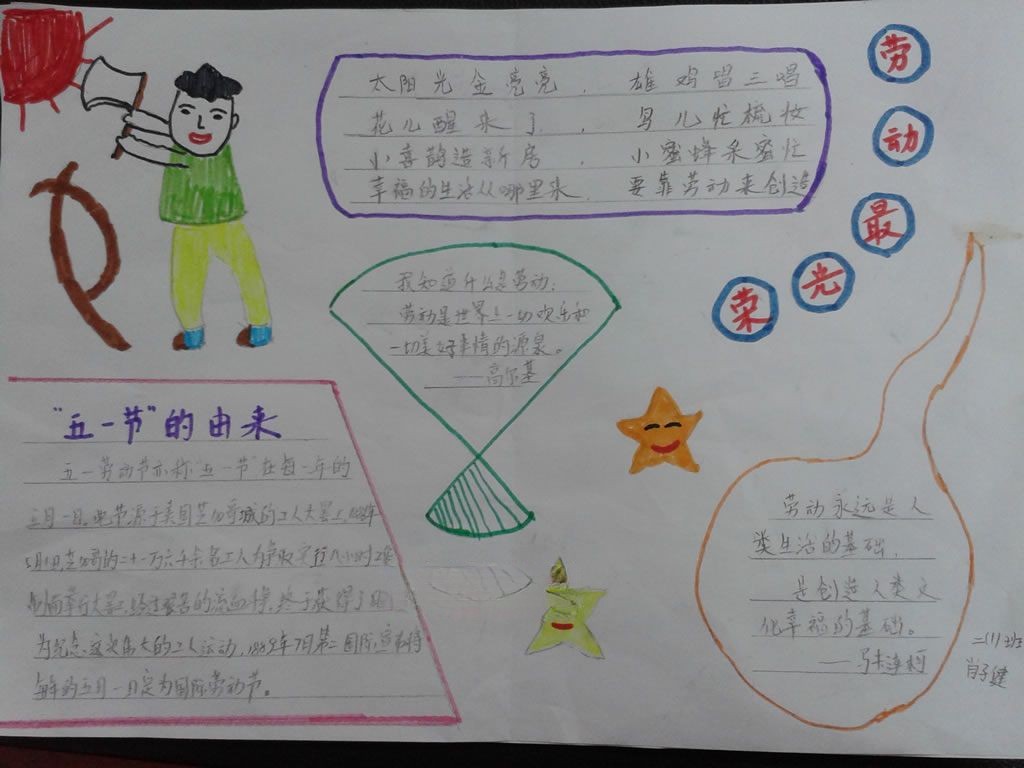 劳动最光荣
太阳光金亮亮，雄鸡唱三唱
花儿醒来了，鸟儿忙梳妆
小喜鹊造新房，小蜜蜂采蜜忙
幸福的生活从哪里来，要靠劳动来创造
我知道什么是劳动：
劳动是世界上一切欢乐和
一切美好事情的源泉。
——高尔基
“五一节”的由来
五一劳动节亦称“五一节”在每一年的
五月一日。此节源于美国芝加哥城的工人大罢工，1886年
5月1日，芝加哥的二十一万六千余名工人为争取实行八小时工作
制而举行大罢工，经过艰苦的流血
为纪念这次伟大的工人运动，1889年7月第二国际宣布将
每年的五月一日定为国际劳动节。
劳动永远是人
类生活的基础，
是创造人类文
化幸福的基础。
——马卡连柯
二(1)班
肖子健